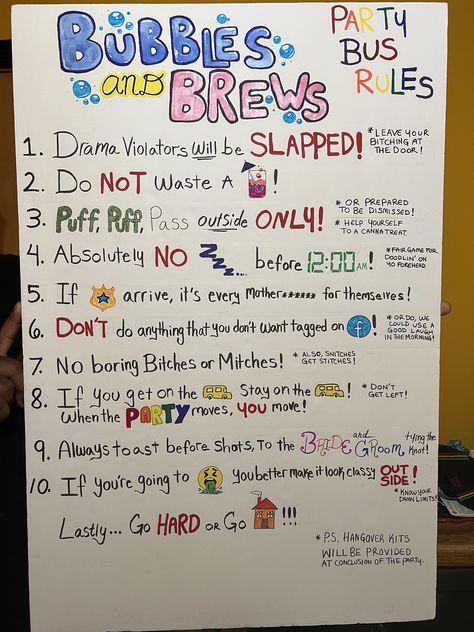 BUBBLES
and
BREWS
PARTY
BUS
RULES
1. Drama Violators will be SLAPPED!
* LEAVE YOUR
BITCHING AT
THE DOOR!
2. Do NOT Waste A !
3. Puff, Puff, Pass outside ONLY!
* OR PREPARED
TO BE DISMISSED!
* HELP YOURSELF
TO A CANNATREAT
4. Absolutely NO ZZZz... before 12:00AM!
* FAIR GAME FOR
DOODLIN' ON
YO FOREHEAD
5. If arrive, it's every mother****** for themselves!
6. DON'T do anything that you don't want tagged on f!
* OR DO, WE
COULD USE A
GOOD LAUGH
IN THE MORNING!
7. No boring Bitches or Mitches!
* ALSO, SNITCHES
GET STITCHES!
8. If you get on the Stay on the !
When the PARTY moves, YOU move!
* DON'T
GET LEFT!
9. Always toast before shots, to the BRIDE and GROOM tying the
Knot!
10. If you're going to you better make it look classy OUT
SIDE!
* KNOW YOUR
DAMN LIMITS!
Lastly... Go HARD OR GO !!!
* P.S. HANGOVER KITS
WILL BE PROVIDED
AT CONCLUSION OF THE PARTY.